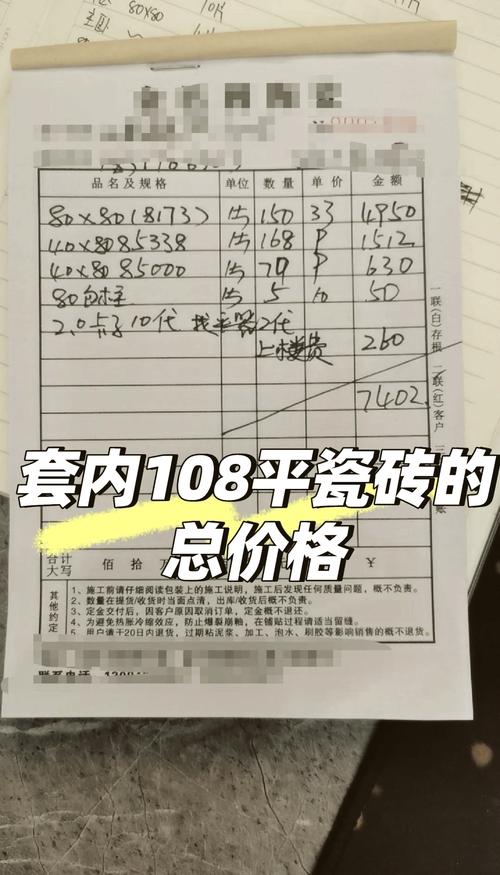 80X80
品名及规格 单位 数量 单价 金额
80×80(8173) 片 150 33 4950
40×8085338 片 168 P 1512
40×8085000 片 70 P 630
80包柱 片 5 10 50
2.0点子10代 找平器2代
上楼费 260
7402
一联(白)存根 二联(红)客户 三
账
套内108平瓷砖的
总价格
合计
大写 佰 拾 万 ¥
其他约定
1、施工前请仔细阅读包装上的施工说明，施工后发现任何质量问题，概不负责。
2、数量在提货/收货时当面点清，出库/收货后概不负责。
3、定金交付后，因客户原因取消订单，定金概不退还。
4、为避免热胀冷缩效应，防止爆裂崩釉，在铺贴过程请适当留缝。
5、用户请于20日内退货，过期粘泥浆、加工、泡水、刷胶等影响销售的概不退货。
联系电话